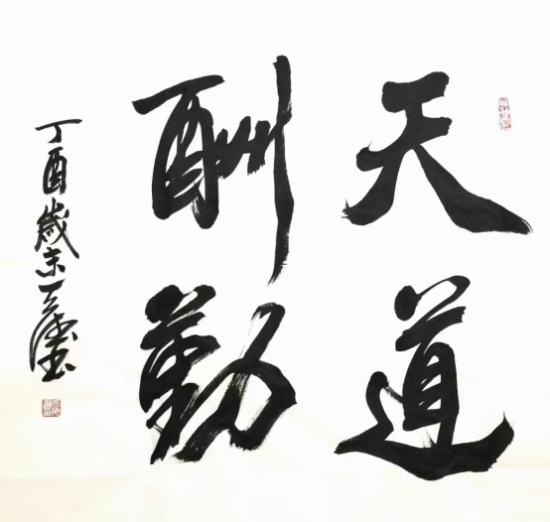 天道
酬勤
丁酉歲末